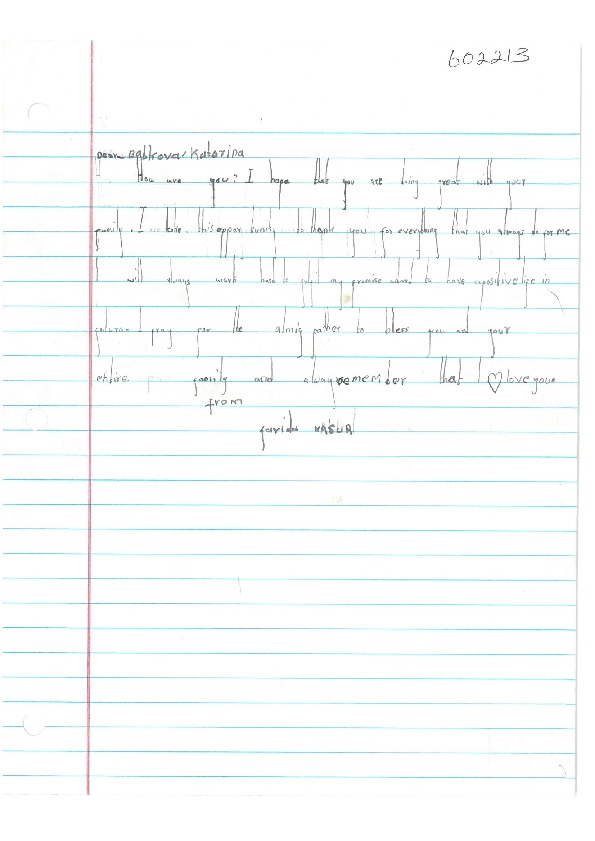 602213
Dear Babkova/Katarina
How are you? I hope that you are doing great with your
family. I take this opportunity to thank you for everything that you always do for me
I will always work hard to fulfil my promise to have a positive life in
future I pray for the almig father to bless you and your
entire family and always remember that I ♡ love you
from
farida NASUR